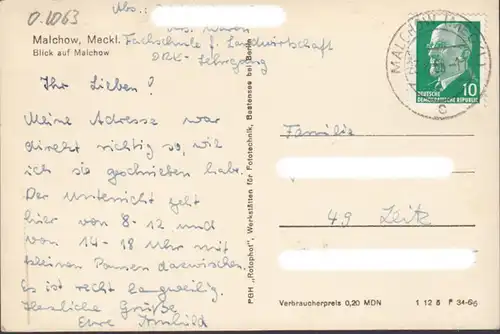 0.1063
Abs.:
Krs. Waren
Malchow, Meckl.
Fachschule f. Landwirtschaft
Blick auf Malchow
DRK-Lehrgang
Ihr Lieben!
Meine Adresse war
direkt richtig so, wie
ich sie geschrieben habe.
Der Unterricht geht
hier von 8-12 und
von 14-18 Uhr mit
kleinen Pausen dazwischen.
Es ist recht langweilig.
Herzliche Grüße
Eure
PGH „Rotophot", Werkstätten für Fototechnik, Bestensee bei Berlin
MALCHOW (MECKL)
c
10
DEUTSCHE
DEMOKRATISCHE REPUBLIK
Familie
49 Zeitz
Verbraucherpreis 0,20 MDN 1 12 6 P 34-66